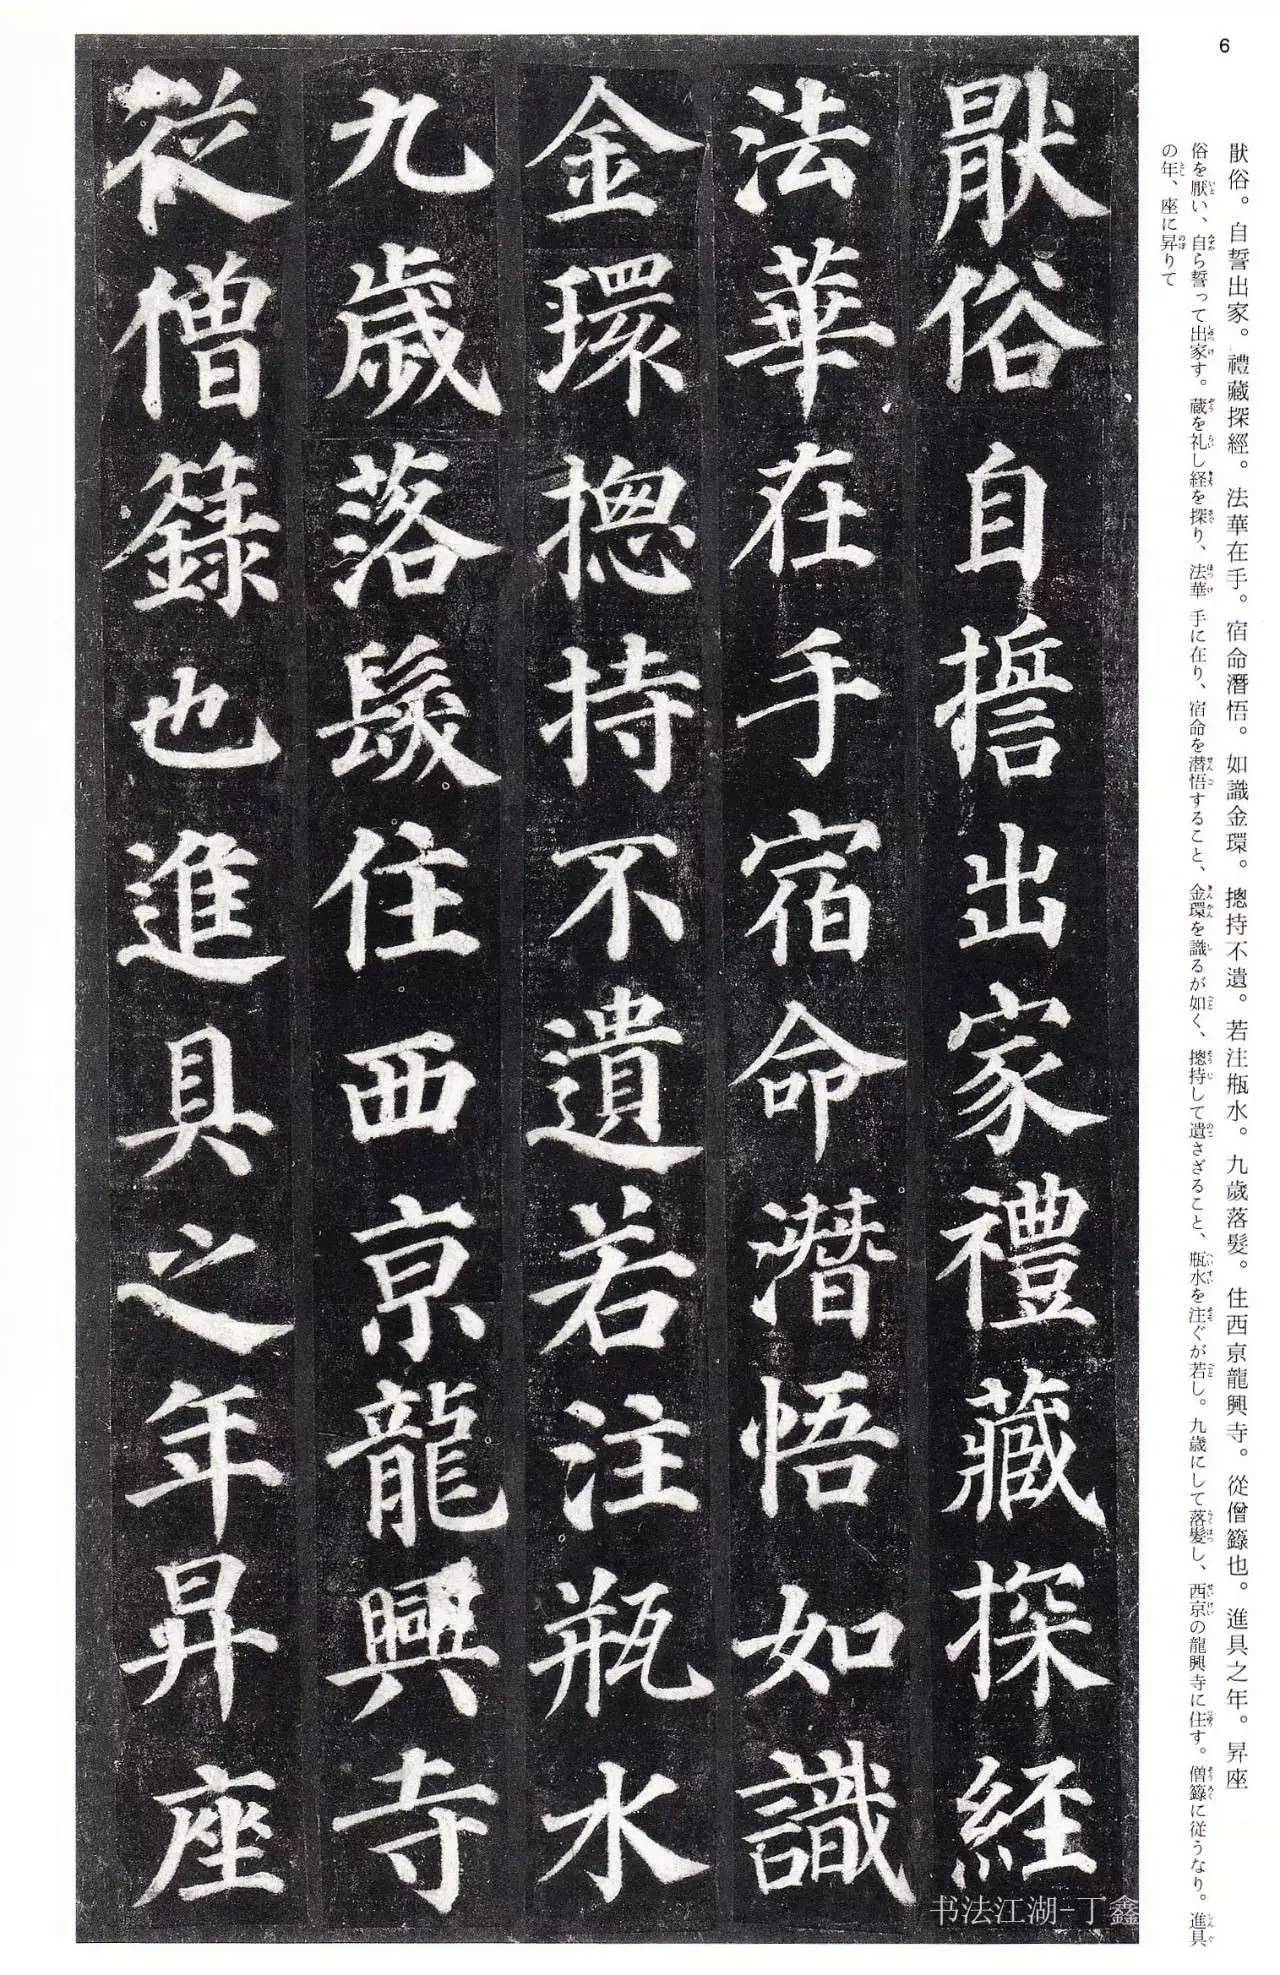 6
猒俗。自誓出家。禮藏探經。法華在手。宿命潛悟。如識金環。摠持不遺。若注瓶水。九歲落髮。住西京龍興寺。從僧籙也。進具之年。昇座
俗を厭い、自ら誓って出家す。蔵を礼し経を探り、法華 手に在り、宿命を潜悟すること、金環を識るが如く、摠持して遺さざること、瓶水を注ぐが若し。九歳にして落髪し、西京の龍興寺に住す。僧籙に従うなり。進具
の年、座に昇りて
猒俗自誓出家禮藏探經
法華在手宿命潛悟如識
金環摠持不遺若注瓶水
九歲落髮住西京龍興寺
從僧籙也進具之年昇座
书法江湖-丁鑫